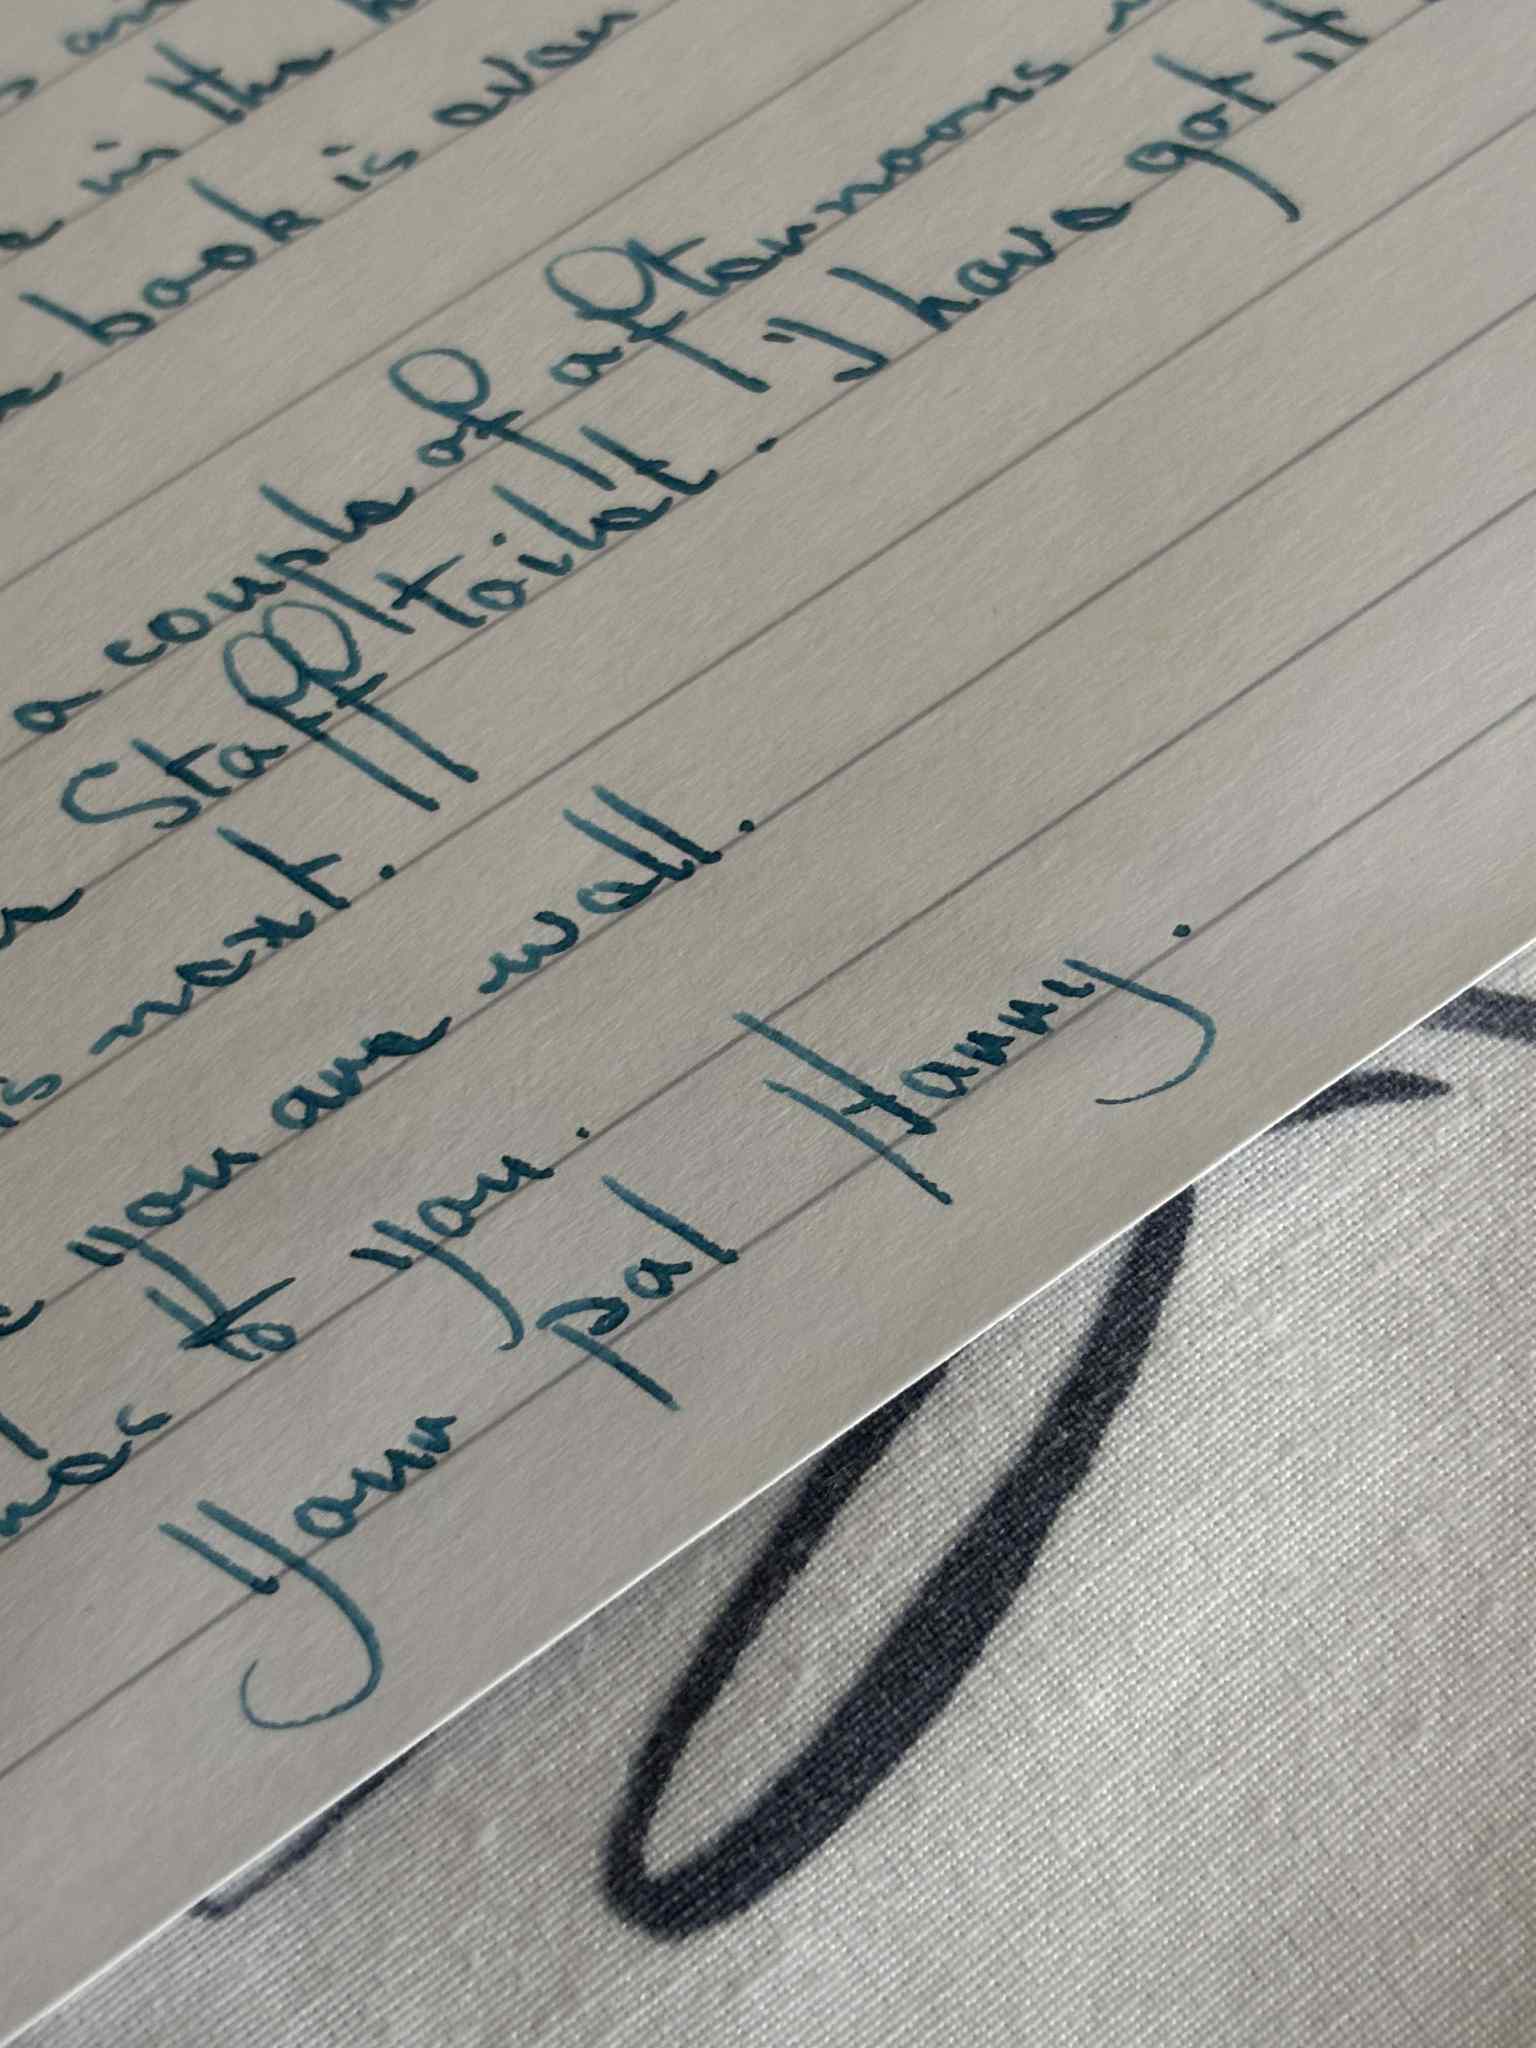 in the
book is even
a couple of afternoons
Staff toilet. I have got it
is next.
you are well.
to you.
Your pal Harry.